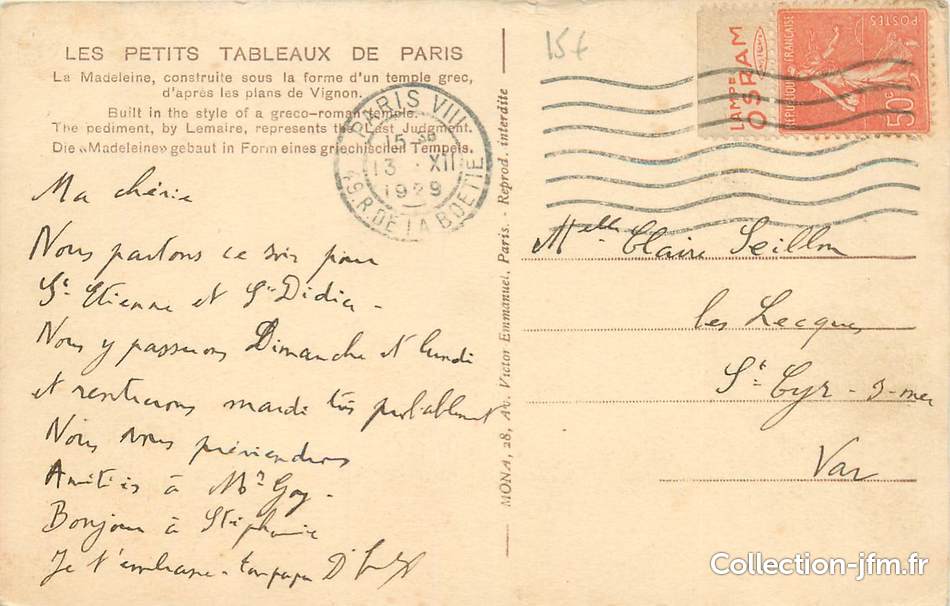 LES PETITS TABLEAUX DE PARIS
La Madeleine, construite sous la forme d'un temple grec,
d'après les plans de Vignon.
Built in the style of a greco-roman temple.
The pediment, by Lemaire, represents the Last Judgment.
Die «Madeleine» gebaut in Form eines griechischen Tempels.
PARIS VIII
15
13 XII
1929
49. R. DE LA BOETIE
15€
LAMPE
OSRAM
REPUBLIQUE FRANÇAISE
POSTES
50c
MONA, 28, Av. Victor Emmanuel, Paris. - Reprod. interdite
Ma chérie
Nous partons ce soir pour
St Etienne et St Didier -
Nous y passerons Dimanche et lundi
et rentrerons mardi très probablement
Nous vous préviendrons
Amitiés à Mr Goy -
Bonjour à Stéphanie
Je t'embrasse - ton papa
Melle Claire Seillon
les Lecques
St Cyr - s - mer
Var
Collection-jfm.fr